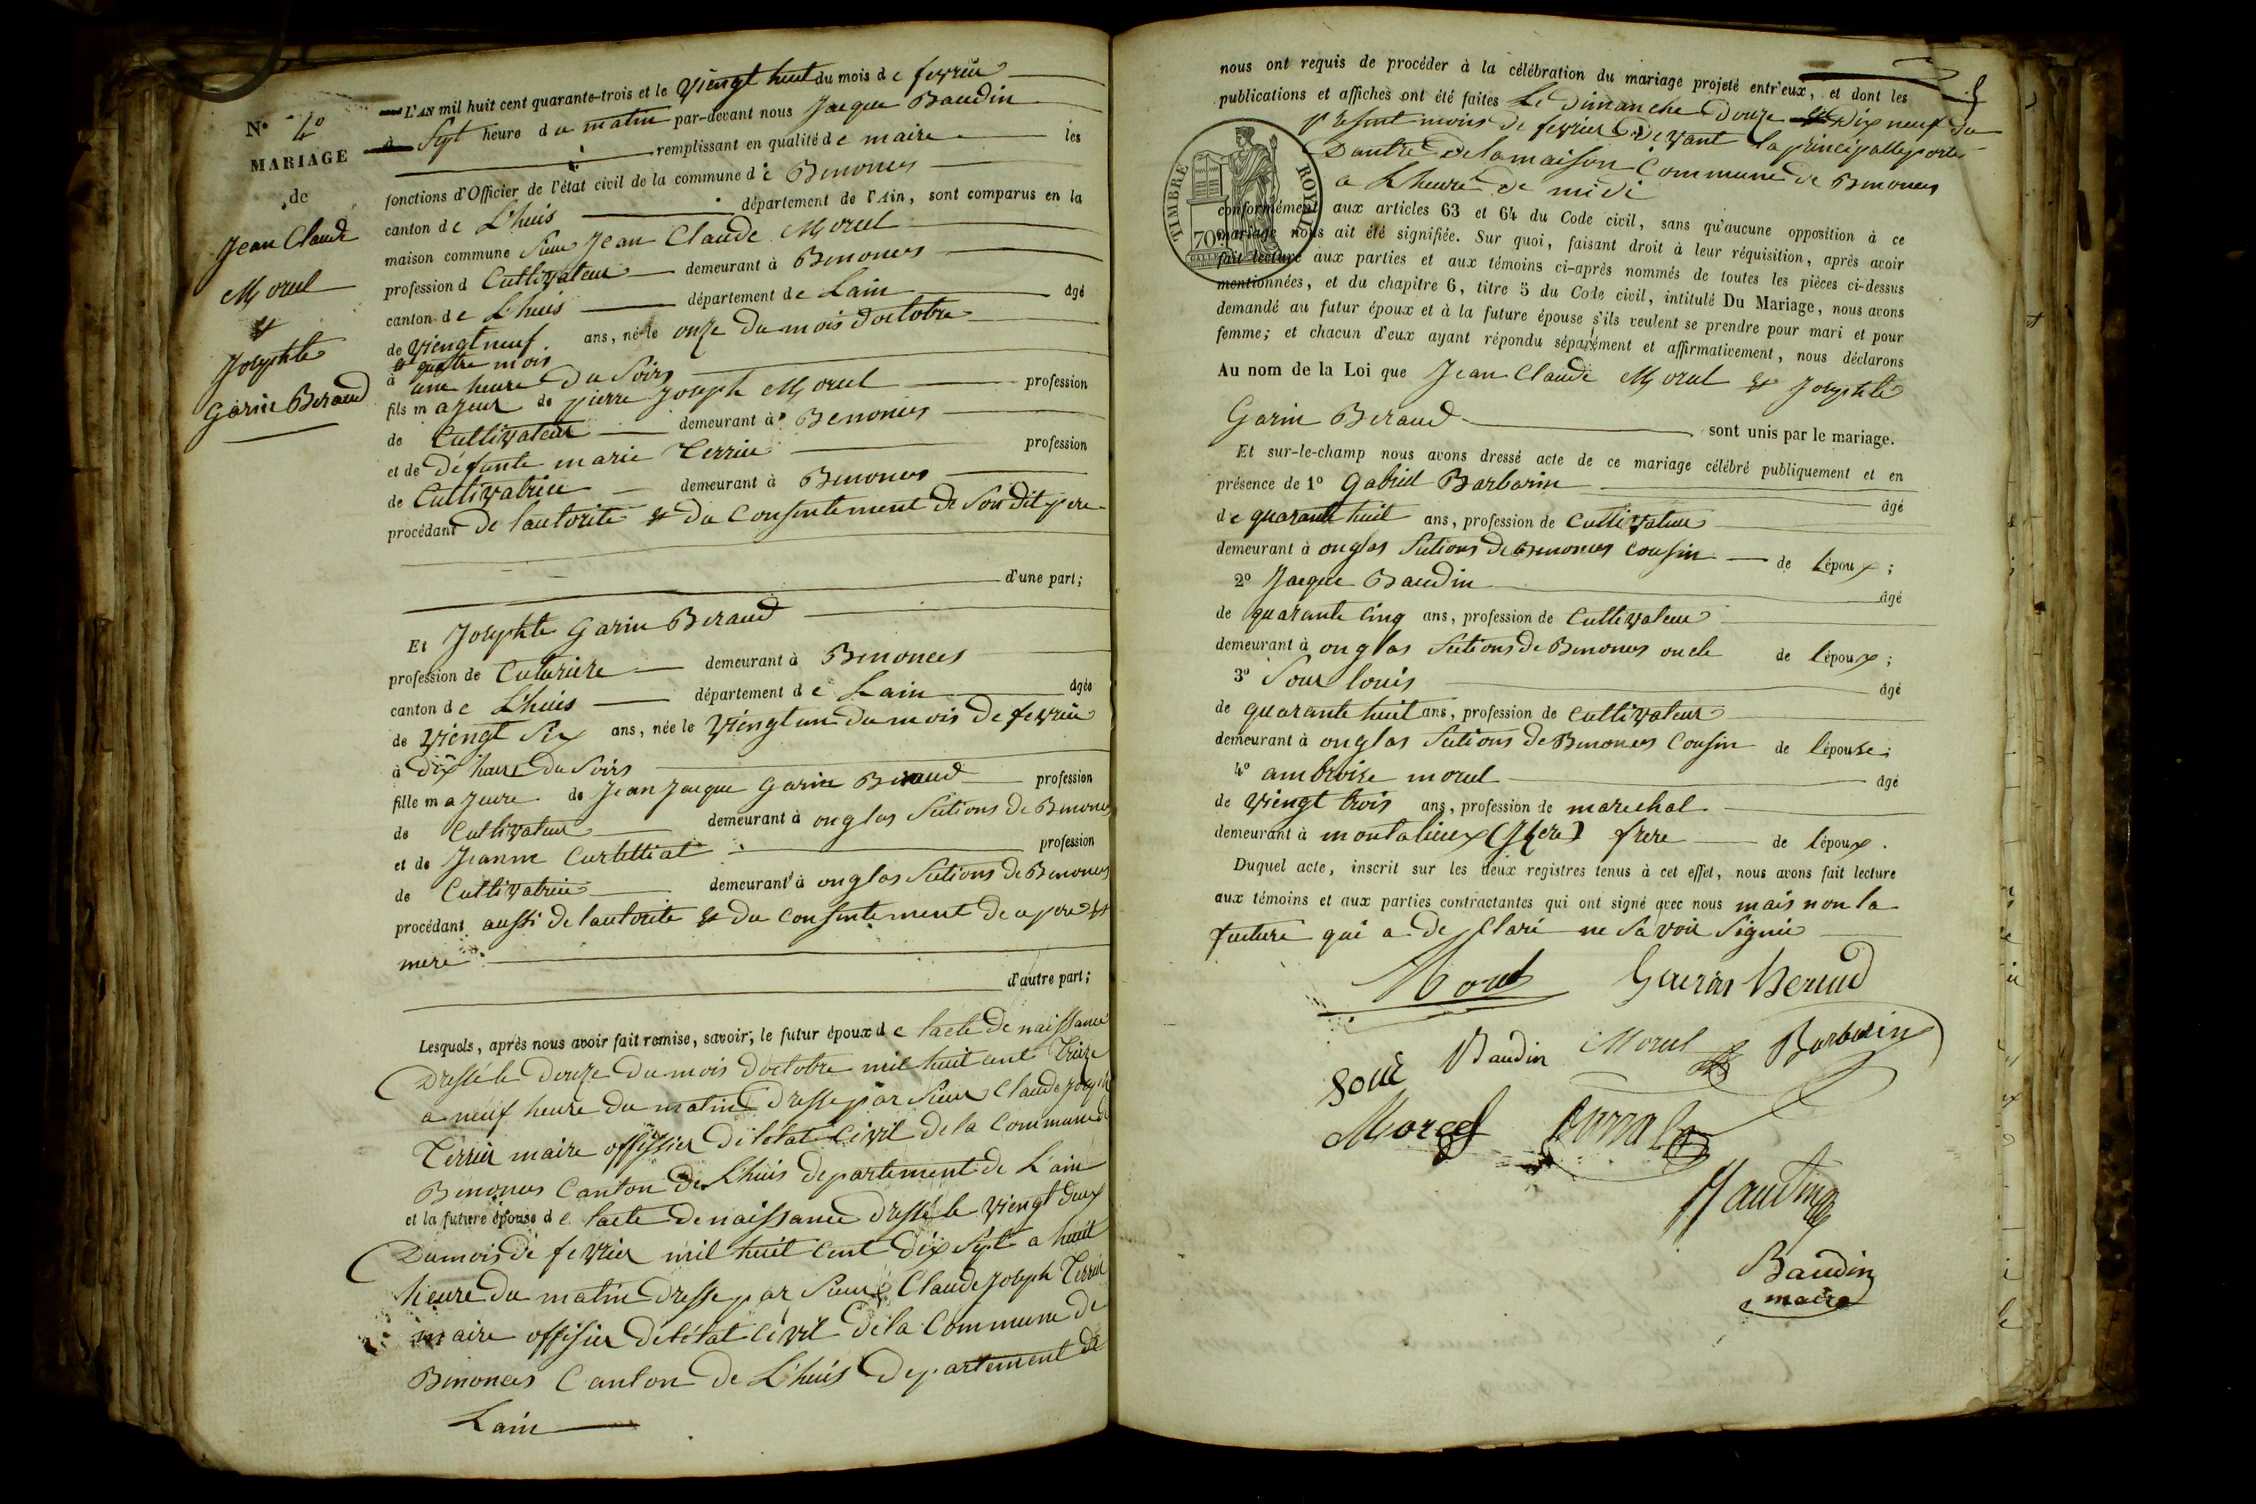 N° 4°
MARIAGE
de
Jean Claude
Morel
et
Josephte
Garin Beraud
L'AN mil huit cent quarante-trois et le viengt huit du mois de fevrier
à sept heure du matin par-devant nous Jacque Baudin
remplissant en qualité de maire les
fonctions d'Officier de l'état civil de la commune de Benonces
canton de L'huis département de l'Ain, sont comparus en la
maison commune Sieur Jean Claude Morel
profession d Cultivateur demeurant à Benonces
canton de L'huis département de Lain âgé
de viengt neuf ans, né le onze du mois doctobre
et quatre mois
à une heure du Soirs
fils majeur de pierre Joseph Morel profession
de Cultivateur demeurant à Benonces
et de défunte marie Terrier profession
de Cultivatrice demeurant à Benonces
procédant de lautorité et du Consentement de Son dit pere
d'une part;
Et Josephte Garin Beraud
profession de Cuturiere demeurant à Benonces
canton de L'huis département de Lain âgée
de viengt Six ans, née le viengt un du mois de fevrier
à dix heure du Soirs
fille majeure de Jean Jacque Garin Beraud profession
de Cultivateur demeurant à onglas Sections de Benonces
et de Jeanne Curtelliat profession
de Cultivatrice demeurant à onglas Sections de Benonces
procédant aussi de lautorité et du consentement de pere et
mere
d'autre part;
Lesquels, après nous avoir fait remise, savoir; le futur époux de lacte de naissance
Dressé le douze du mois doctobre mil huit cent treize
a neuf heure du matin dresse par Sieur Claude Joseph
Terrier maire officier de létat civil de la Commune de
Benonces Canton de L'huis departement de L'ain
et la future épouse de lacte de naissance dressé le viengt deux
Du mois de fevrier mil huit cent dix Sept a huit
heure du matin dresse par Sieur Claude Joseph Terrier
maire offisier de létat civil de la Commune de
Benonces Canton de L'huis Departement de
Lain
nous ont requis de procéder à la célébration du mariage projeté entr'eux, et dont les
publications et affiches ont été faites Le dimanche Douze et Dix neuf du
present mois de fevrier Devant la principalle porte
Dantré de la maison Commune de Benonces
a Lheure de midi
conformément aux articles 63 et 64 du Code civil, sans qu'aucune opposition à ce
mariage nous ait été signifiée. Sur quoi, faisant droit à leur réquisition, après avoir
fait lecture aux parties et aux témoins ci-après nommés de toutes les pièces ci-dessus
mentionnées, et du chapitre 6, titre 5 du Code civil, intitulé Du Mariage, nous avons
demandé au futur époux et à la future épouse s'ils veulent se prendre pour mari et pour
femme; et chacun d'eux ayant répondu séparément et affirmativement, nous déclarons
Au nom de la Loi que Jean Claude Morel et Josephte
Garin Beraud sont unis par le mariage.
Et sur-le-champ nous avons dressé acte de ce mariage célébré publiquement et en
présence de 1° Gabriel Barbarin âgé
de quarante huit ans, profession de Cultivateur
demeurant à onglas Sections de Benonces Cousin de lépoux;
2° Jacque Baudin âgé
de quarante cinq ans, profession de Cultivateur
demeurant à onglas Sections de Benonces oncle de lépoux;
3° Sour louis âgé
de quarante huit ans, profession de Cultivateur
demeurant à onglas Sections de Benonces Cousin de lépouse;
4° ambroise morel âgé
de viengt trois ans, profession de marechal
demeurant à montalieux (Isere) frere de lépoux.
Duquel acte, inscrit sur les deux registres tenus à cet effet, nous avons fait lecture
aux témoins et aux parties contractantes qui ont signé avec nous mais non la
future qui a de Claré ne Savoir Signier
Morel
Baudin Morel Barbarin
Sour
Morel
Baudin
maire
TIMBRE ROYAL
70